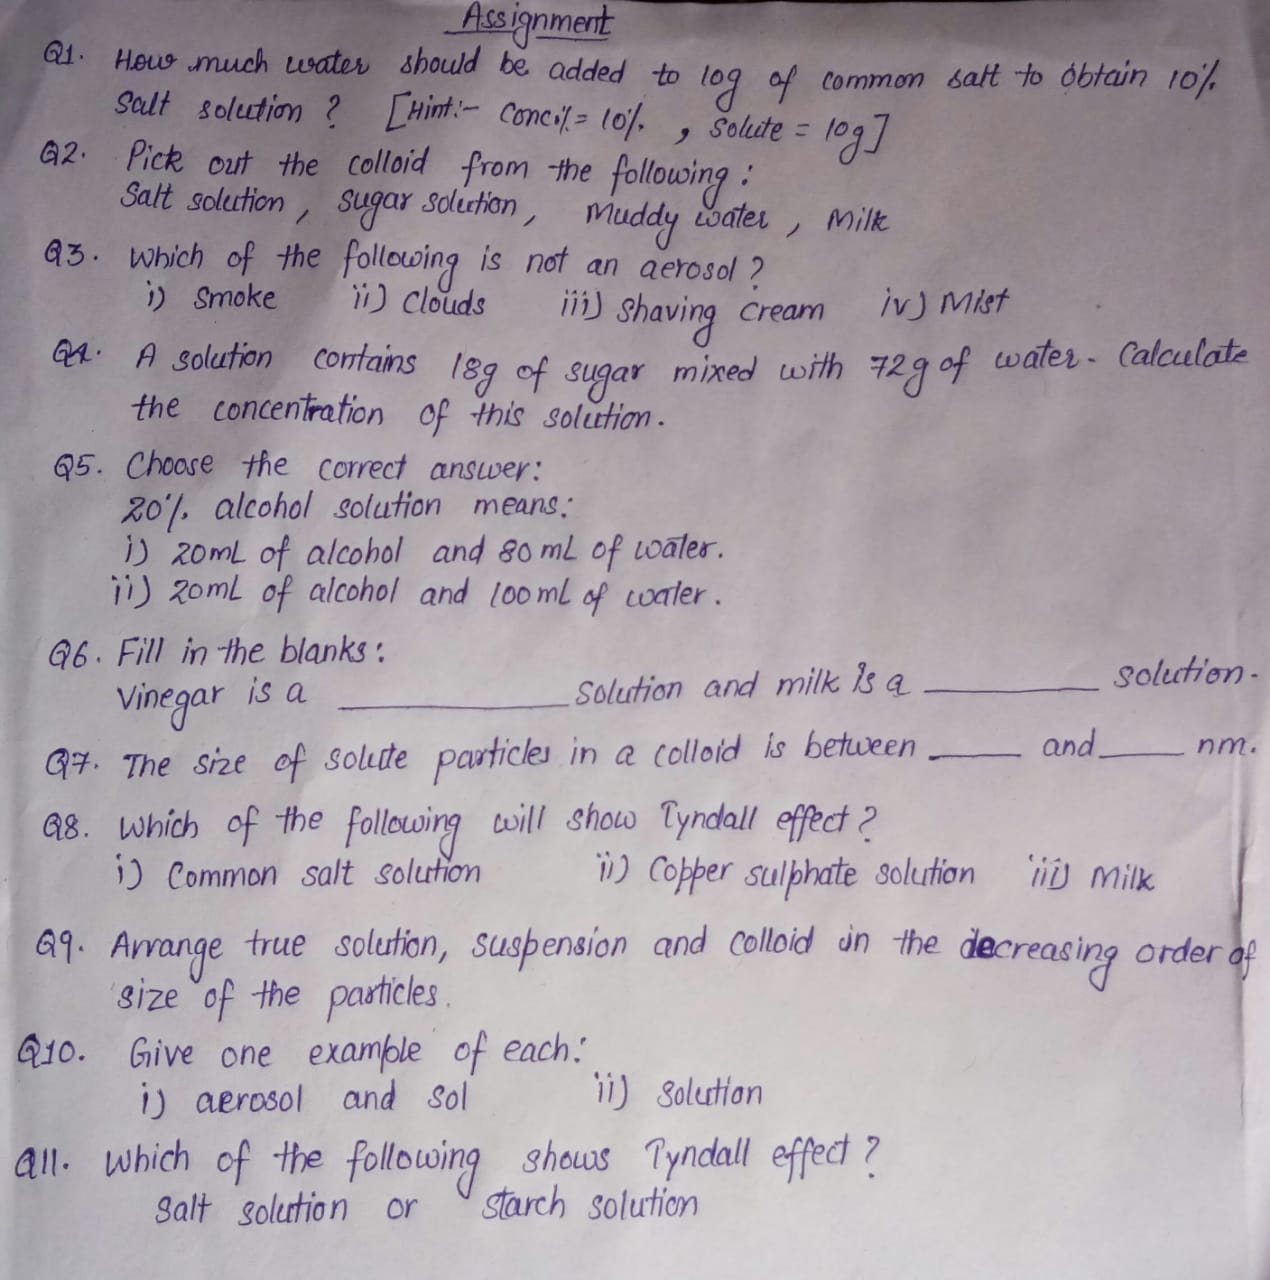 Assignment
Q1. How much water should be added to 10g of common salt to obtain 10%
Salt solution ? [Hint:- Conc.% = 10% , Solute = 10g]
Q2. Pick out the colloid from the following :
Salt solution , Sugar solution , Muddy water , Milk
Q3. Which of the following is not an aerosol ?
i) Smoke ii) Clouds iii) Shaving cream iv) Mist
Q4. A solution contains 18g of sugar mixed with 72g of water. Calculate
the concentration of this solution.
Q5. Choose the correct answer:
20% alcohol solution means:
i) 20mL of alcohol and 80 mL of water.
ii) 20mL of alcohol and 100 mL of water.
Q6. Fill in the blanks :
Vinegar is a ________ solution and milk is a ________ solution.
Q7. The size of solute particles in a colloid is between ____ and ____ nm.
Q8. Which of the following will show Tyndall effect ?
i) Common salt solution ii) Copper sulphate solution iii) Milk
Q9. Arrange true solution, suspension and colloid in the decreasing order of
size of the particles.
Q10. Give one example of each:
i) aerosol and sol ii) solution
Q11. Which of the following shows Tyndall effect ?
Salt solution or starch solution